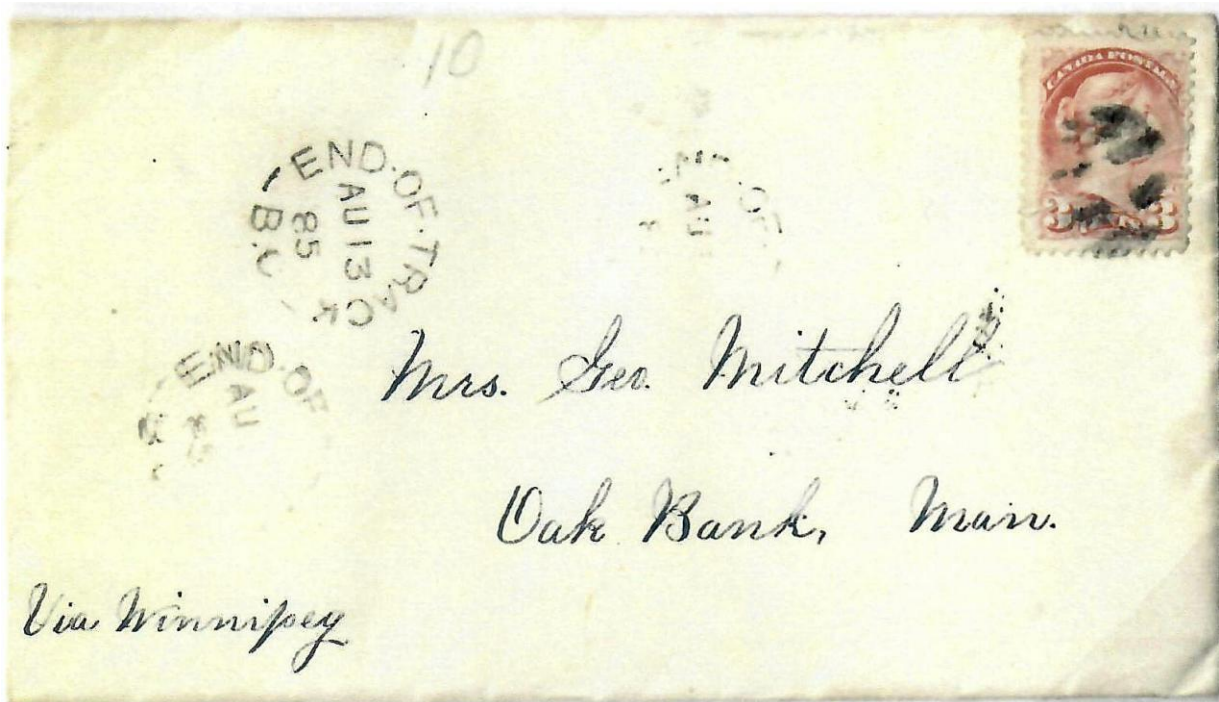 10
CANADA POSTAGE
3 3
END·OF·TRACK
AU 13
85
B.C
OF
AU
END·OF
AU
85
Mrs. Geo. Mitchell
Oak Bank, Man.
Via Winnipeg